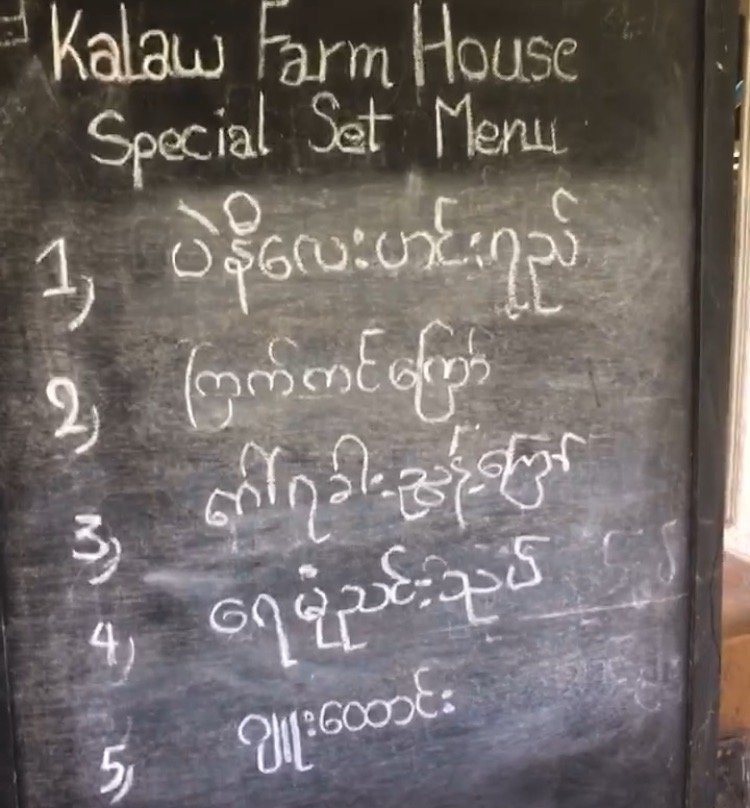 Kalaw Farm House
Special Set Menu
1, ပဲနီလေးဟင်းရည်
2, ကြက်ကင်ကြော်
3, ဂေါ်ရခါးညွန့်ကြော်
4, ရေမုံညင်းသုပ်
5, ဂျူးထောင်း